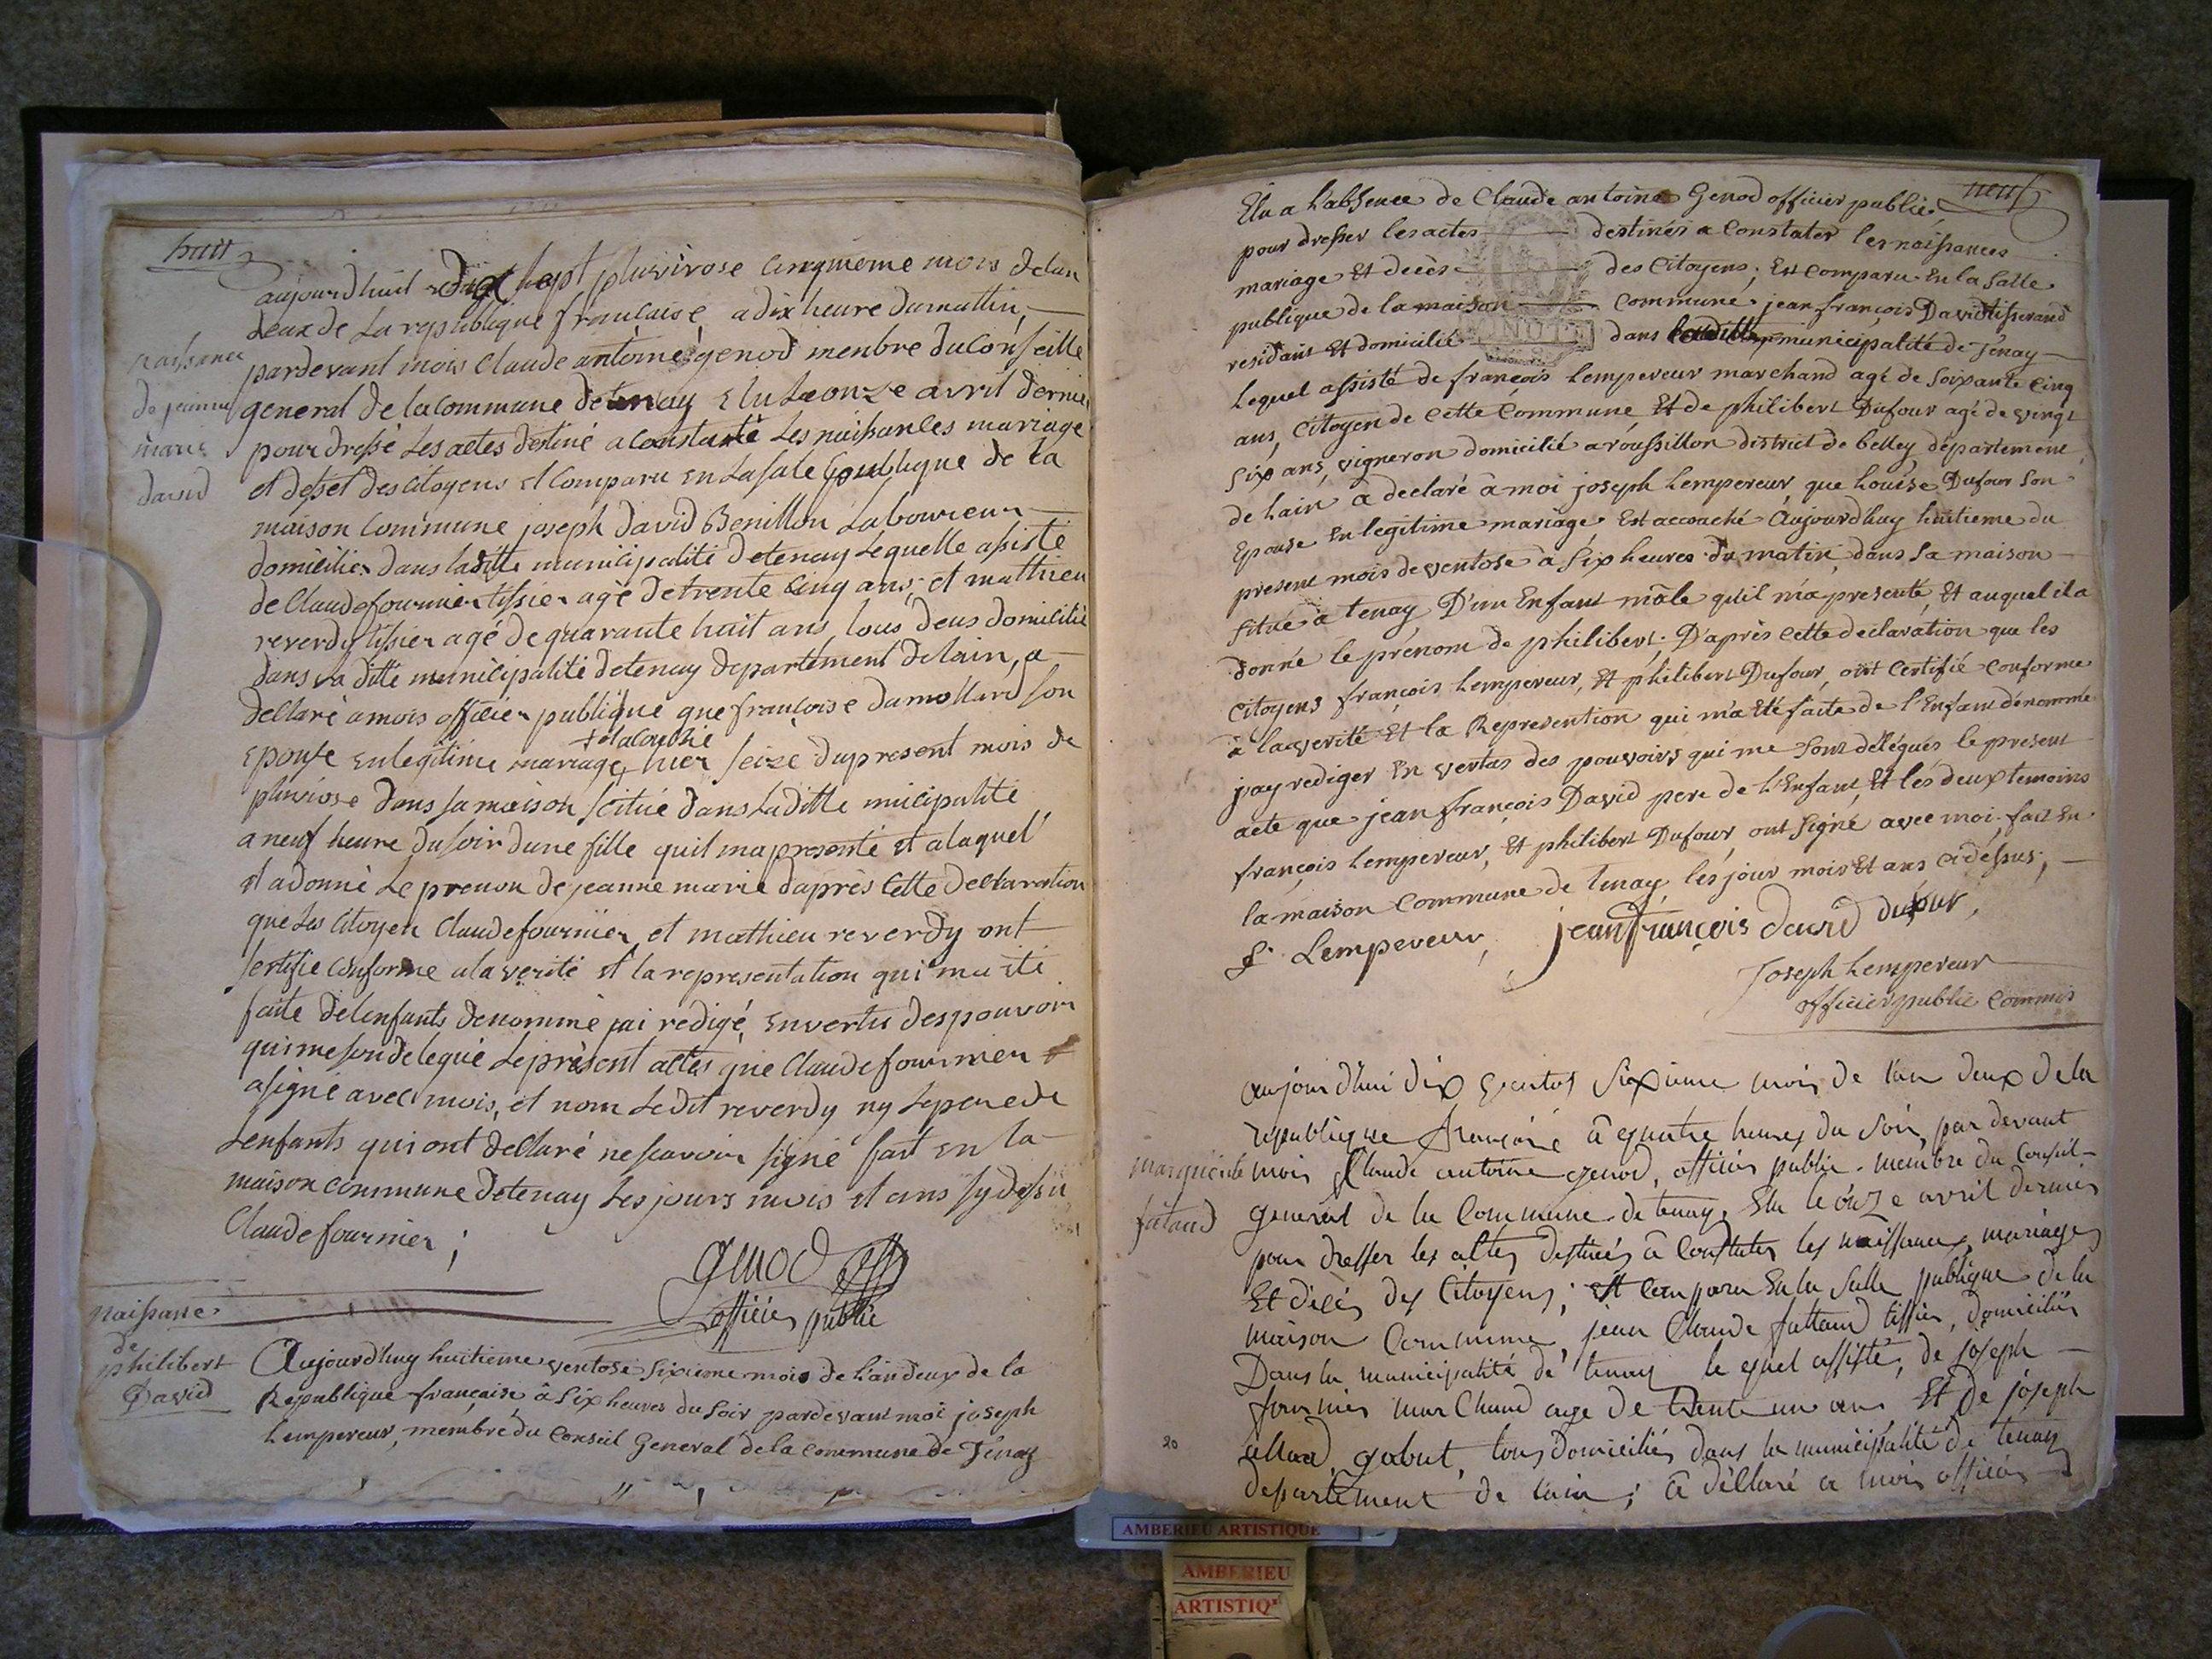 huit
aujourdhuit dix sept pluvirose cinquieme mois delan
deux de La republique francaise, a dix heure dumattin,
pardevant mois Claude antoine genod menbre du Conseille
general de la commune detenay Elu Le onze avril dernier
pour dressé Les actes destiné a Constaté Les naissances mariage
et desset des citoyens et Comparu en La sale publique de la
maison Commune joseph david Benillon Laboureur
domicilier dans laditte municipalité detenay Lequelle asisté
de Claude fournier tissier agé de trente cinq ans, et mathieu
reverdy tissier agé de quarante huit ans, tous deus domicilié
dans La ditte municipalité detenay departement delain, a
declaré a mois officier publique que francoise dumollard son
+ et acouché
Epouse en legitime mariage + hier seize du present mois de
pluviose dans sa maison scitué dans Laditte micipalité
a neuf heure du soir dune fille quil ma presenté et a laquel
il a donné Le prenon de jeanne marie daprès Cette declaration
que Les Citoyen Claude fournier et mathieu reverdy ont
sertifie Conforme a la verité et la representation qui ma été
faite delenfants denommé jai redigé, en vertu des pouvoir
qui me son delegué Le present actes que Claude fournier
a signé avec mois, et nom Ledit reverdy ny Le pere de
Lenfants qui ont declaré ne scavoir signé fait en la
maison commune detenay Les jours mois et ans sy dessu
Claude fournier ;
genod
officier public
naissance
de jeanne
marie
david
naissance
de
philibert
David
Aujourdhuy huitieme ventose sixieme mois de L'an deux de la
Republique française, à six heures du soir pardevant moi joseph
Lempereur, membre du Conseil General de la commune de Tenay
neuf
Elu a L'absence de Claude antoine Genod officier public
pour dresser les actes destinés a Constater les naissances
mariage Et decès des Citoyens ; Est comparu En la Salle
publique de la maison Commune jean françois David tisserand
residant Et domicilié dans municipalité de Tenay
Lequel assisté de françois Lempereur marchand agé de soixante cinq
ans, Citoyen de cette Commune Et de philibert Dufour agé de vingt
six ans, vigneron domicilié a roussillon district de belley departement
de Lain a declaré a moi joseph Lempereur, que Louise Dufour son
Epouse En legitime mariage Est accouché Aujourd'huy huitieme du
present mois de ventose à six heures du matin, dans sa maison
situé a tenay, D'un Enfant mâle qu'il m'a presenté, Et auquel il a
donné le prénom de philibert ; D'après cette declaration que les
Citoyens françois Lempereur, Et philibert Dufour, ont certifié conforme
a la verité Et la Represention qui m'a Eté faite de l'Enfant dénommé
j'ay rediger En vertus des pouvoirs qui me sont délégués le present
acte que jean françois David pere de l'Enfant, Et les deux temoins
françois Lempereur, Et philibert Dufour, ont signé avec moi. fait En
la maison Commune de Tenay les jour mois Et ans ci dessus ;
f. Lempereur, jean françois david dufour,
Joseph Lempereur
officier public Commis
marguerite
futaud
aujourdhui dix ventos sixieme mois de l'an deux de la
republique francaise à quatre heures du soir, par devant
mois Claude antoine genod, officier public membre du Conseil
general de la Commune de tenay, Elu le onze avril dernier
pour dresser les actes destinés à Constater les naissances, mariages
Et decés des Citoyens ; Et Comparu En la Salle publique de la
maison Commune, jean Claude futtaud tissier, domicilié
Dans la municipalité de tenay lequel assisté, de joseph
fournier marchand age de trente un ans Et de joseph
gabut, tous domiciliés dans la municipalité de tenay
departement de lain ; à déclaré a mois officier
20
AMBERIEU ARTISTIQUE
AMBERIEU
ARTISTIQ